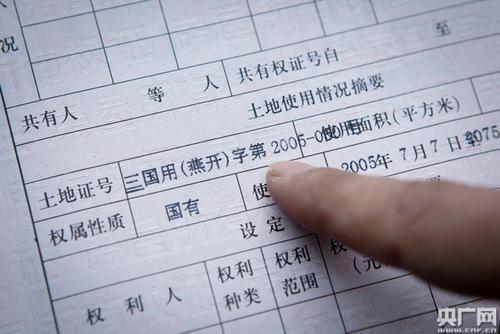 况
共有权证号自
共有人 等 人
土地使用情况摘要
土地证号 三国用(燕开)字第 2005-0 使用面积(平方米)
权属性质 国有 使 2005年7月7日至2075
设定
权利人 权利种类 权利范围 权 (元
央广网
www.cnr.cn